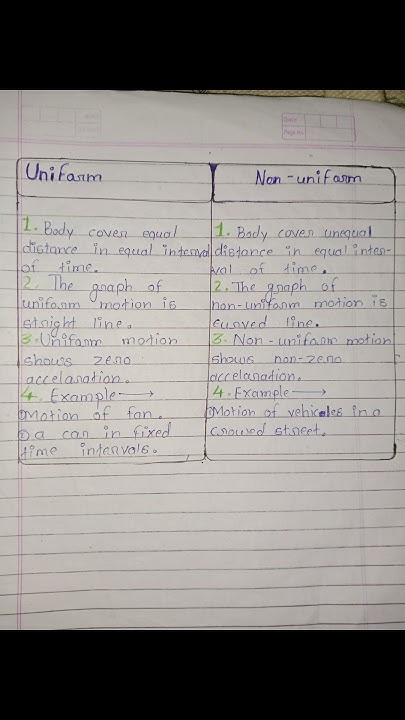 Uniform
1. Body cover equal
distance in equal interval
of time.
2. The graph of
uniform motion is
stright line.
3. Uniform motion
shows zero
accelaration.
4. Example →
① Motion of fan.
② a car in fixed
time intervals.
Non-uniform
1. Body cover unequal
distance in equal inter-
val of time.
2. The graph of
non-uniform motion is
curved line.
3. Non-uniform motion
shows non-zero
accelaration.
4. Example →
① Motion of vehicales in a
crowed street.
Date
Page No.